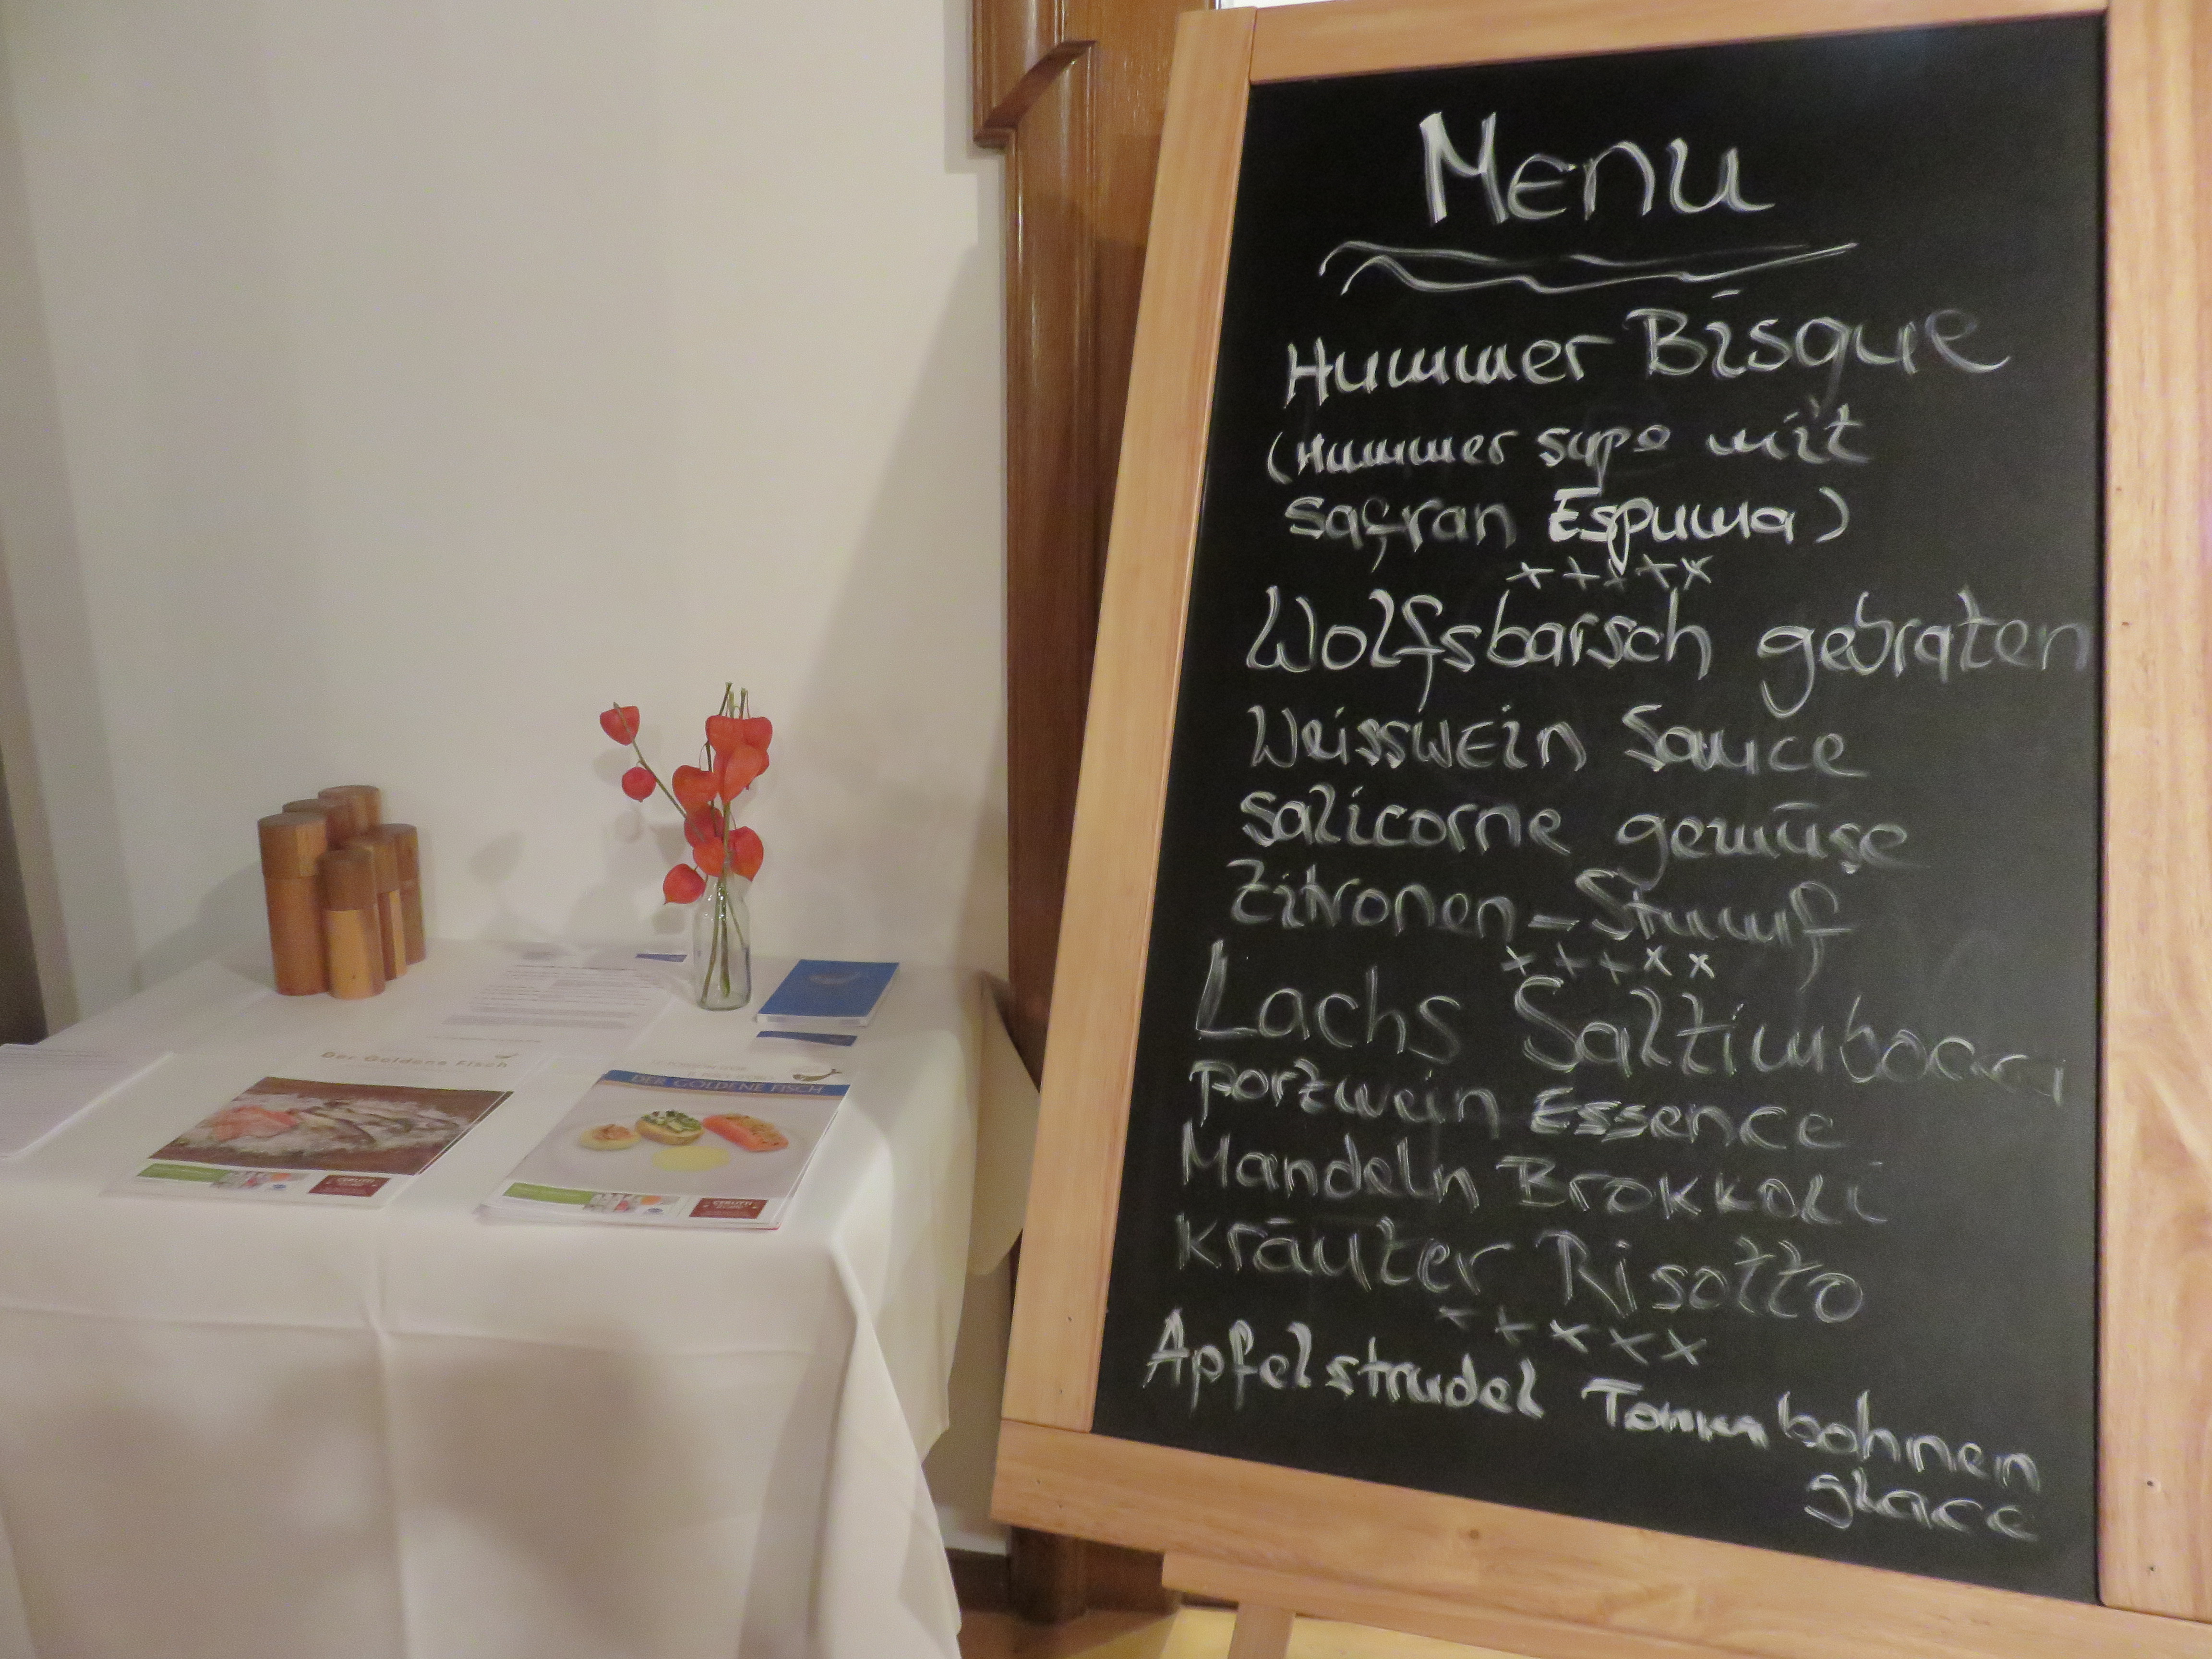 Menu
Hummer Bisque
(Hummer supe mit
safran Espuma)
xxxxx
Wolfsbarsch gebraten
Weisswein Sauce
Salicorne gemüse
Zitronen-Strumf
xxxxx
Lachs Saltimbocca
Porzwein Essence
Mandeln Brokkoli
Kräuter Risotto
xxxxx
Apfelstrudel Tonnbohnen
glace
Der Goldene Fisch
DER GOLDENE FISCH